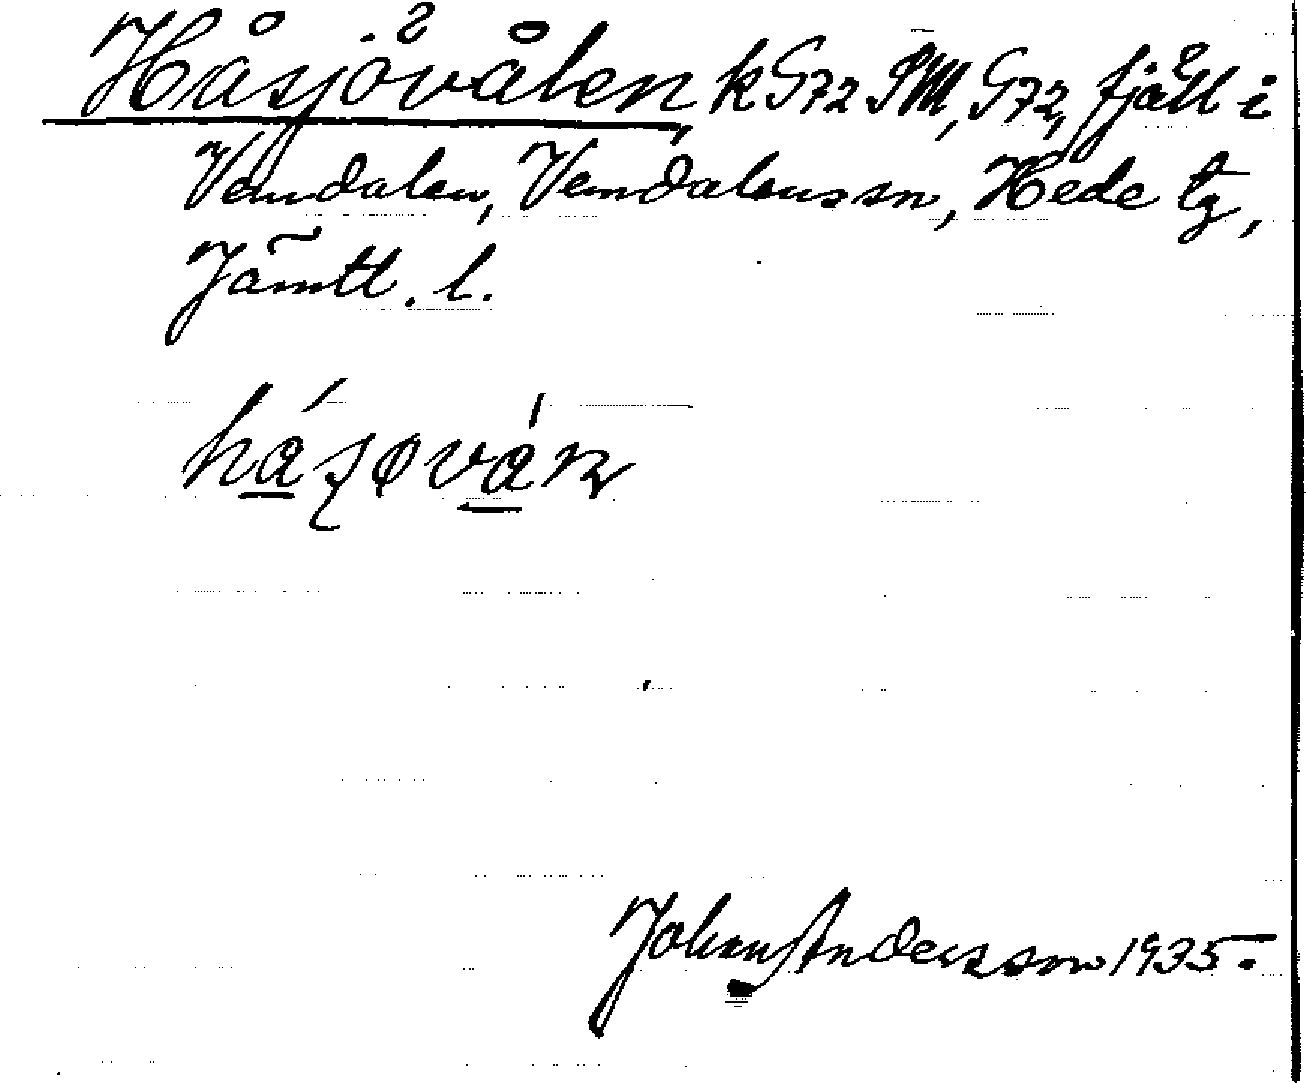 Håsjövålen, k G72 SM, G72, fjäll i
Vemdalen, Vemdalens sn, Hede tg,
Jämtl. l.
Johan Andersson 1935.